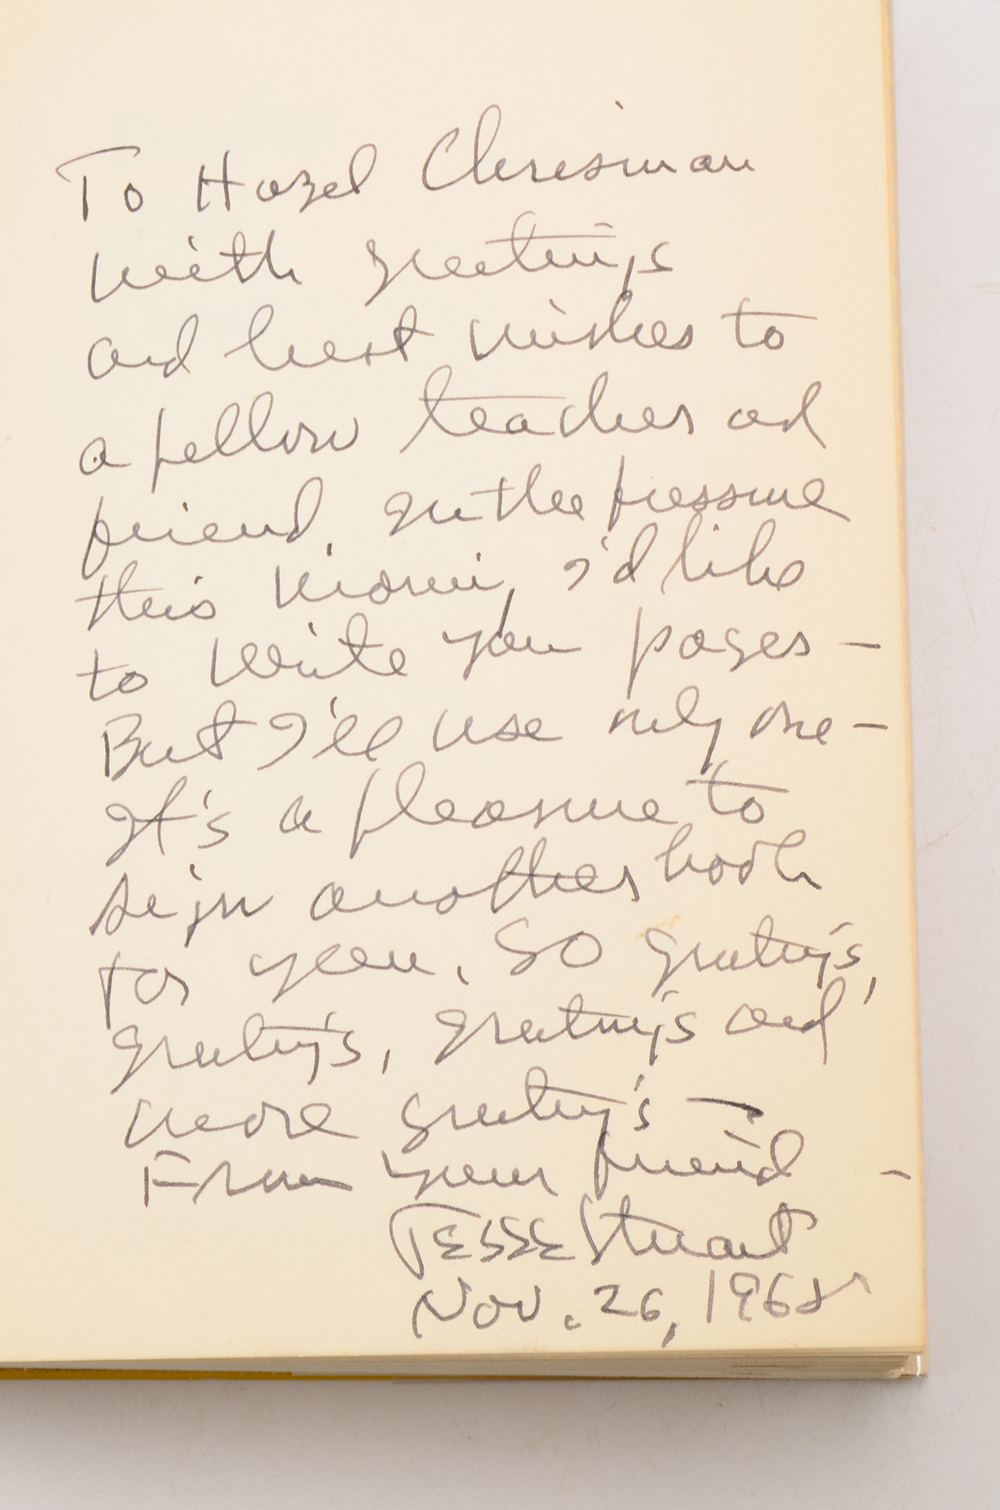 To Hazel Chrisman
with greetings
and best wishes to
a fellow teacher and
friend. In the pressure
this morning, I'd like
to write you pages —
But I'll use only one —
It's a pleasure to
sign another book
for you. So greetings,
greetings, greetings and
more greetings —
From your friend —
JESSE Stuart
Nov. 26, 1968